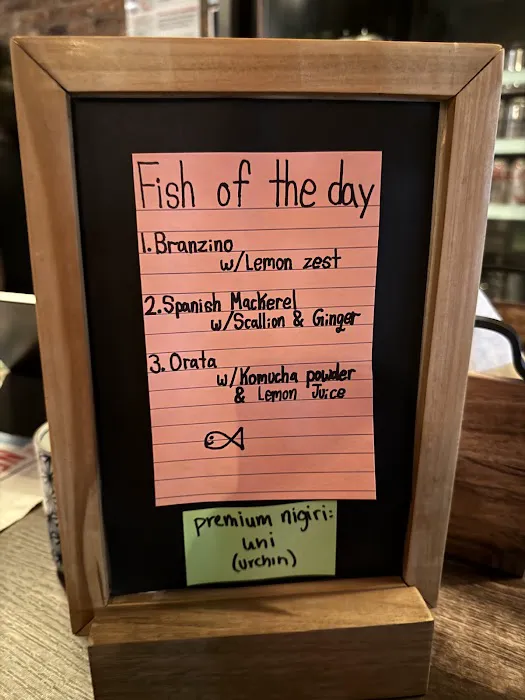 Fish of the day
1. Branzino
w/Lemon zest
2. Spanish Mackerel
w/Scallion & Ginger
3. Orata
w/Komucha powder
& Lemon Juice
premium nigiri:
uni
(urchin)